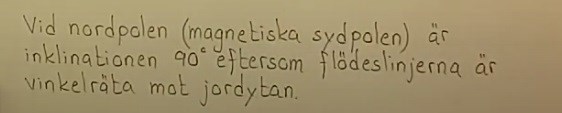 Vid nordpolen (magnetiska sydpolen) är
inklinationen 90° eftersom flödeslinjerna är
vinkelräta mot jordytan.